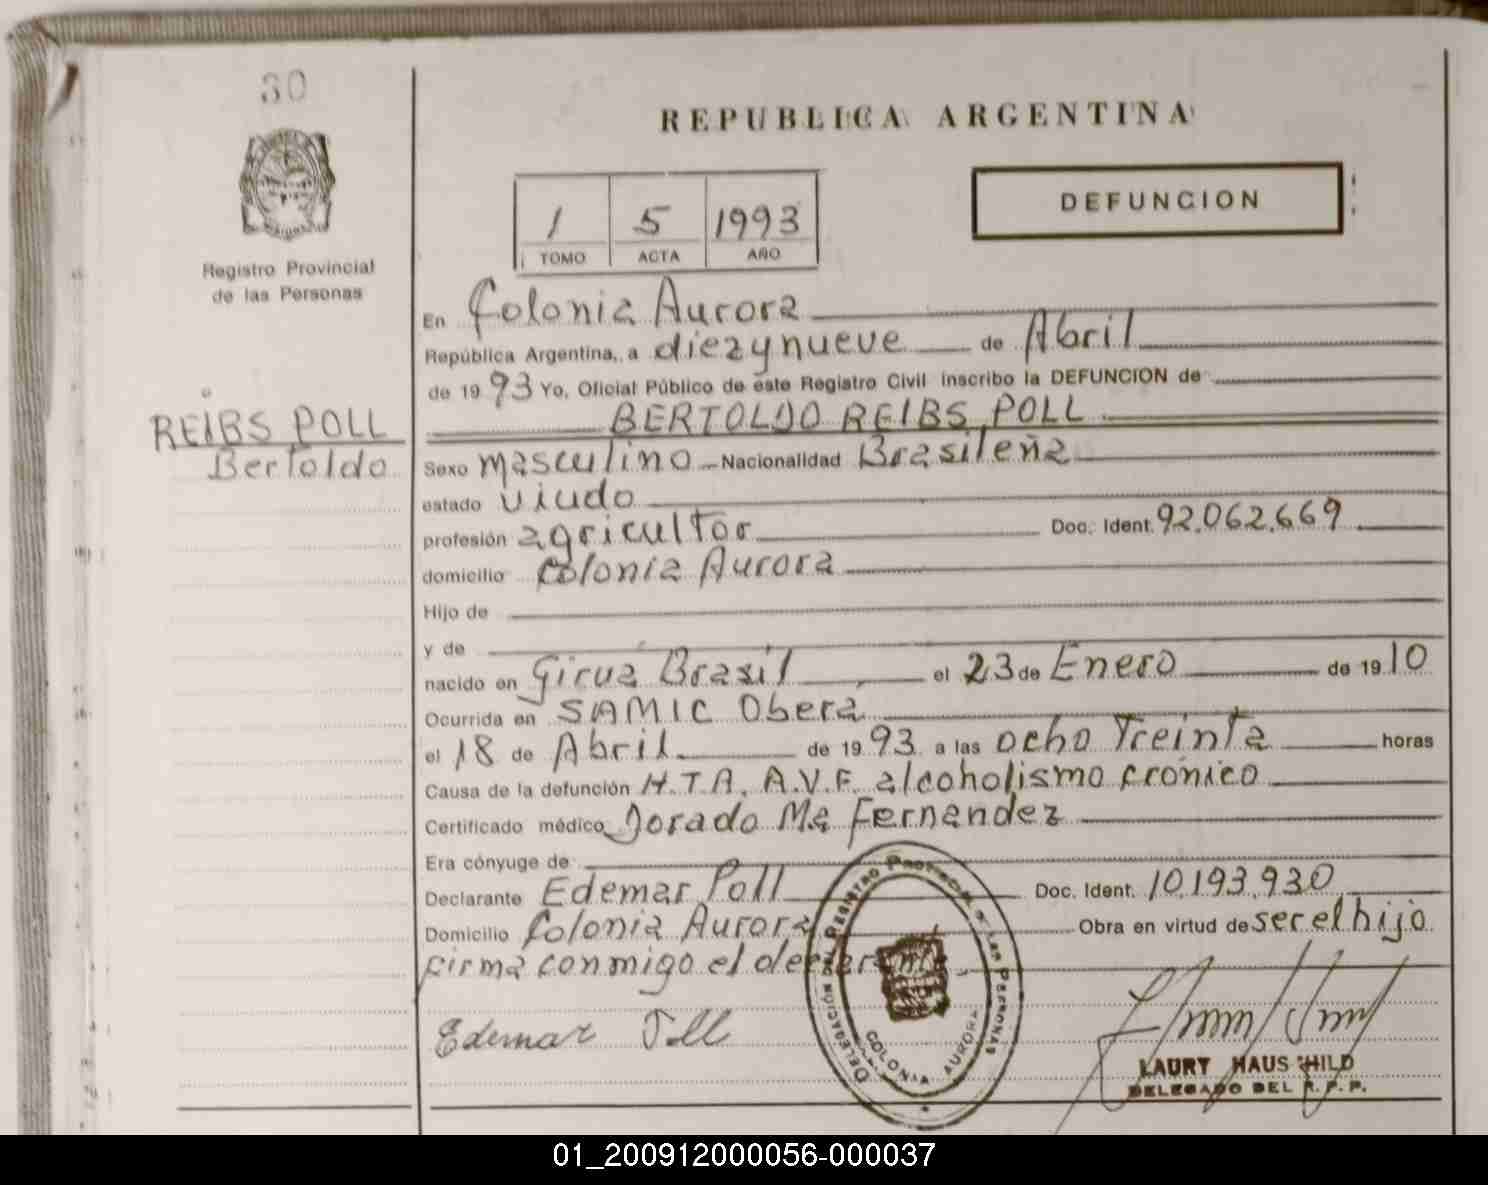 30
REPUBLICA ARGENTINA
1 5 1993
TOMO ACTA AÑO
DEFUNCION
Registro Provincial
de las Personas
REIBS POLL
Bertoldo
En Colonia Aurora
República Argentina, a diezynueve de Abril
de 1993 Yo, Oficial Público de este Registro Civil inscribo la DEFUNCION de
BERTOLDO REIBS POLL
Sexo masculino Nacionalidad Brasileña
estado viudo
profesión agricultor Doc. Ident. 92.062.669
domicilio Colonia Aurora
Hijo de
y de
nacido en Girua Brasil el 23 de Enero de 1910
Ocurrida en SAMIC Oberá
el 18 de Abril de 1993 a las ocho Treinta horas
Causa de la defunción H.T.A. A.V.F. alcoholismo crónico
Certificado médico Dorado Ma Fernandez
Era cónyuge de
Declarante Edemar Poll Doc. Ident. 10.193.930
Domicilio Colonia Aurora Obra en virtud de ser el hijo
firma conmigo el
Edemar Poll
DELEGACION DEL REGISTRO PROVINCIAL DE LAS PERSONAS
COLONIA AURORA
LAURY HAUSCHILD
DELEGADO DEL R.P.P.
01_200912000056-000037